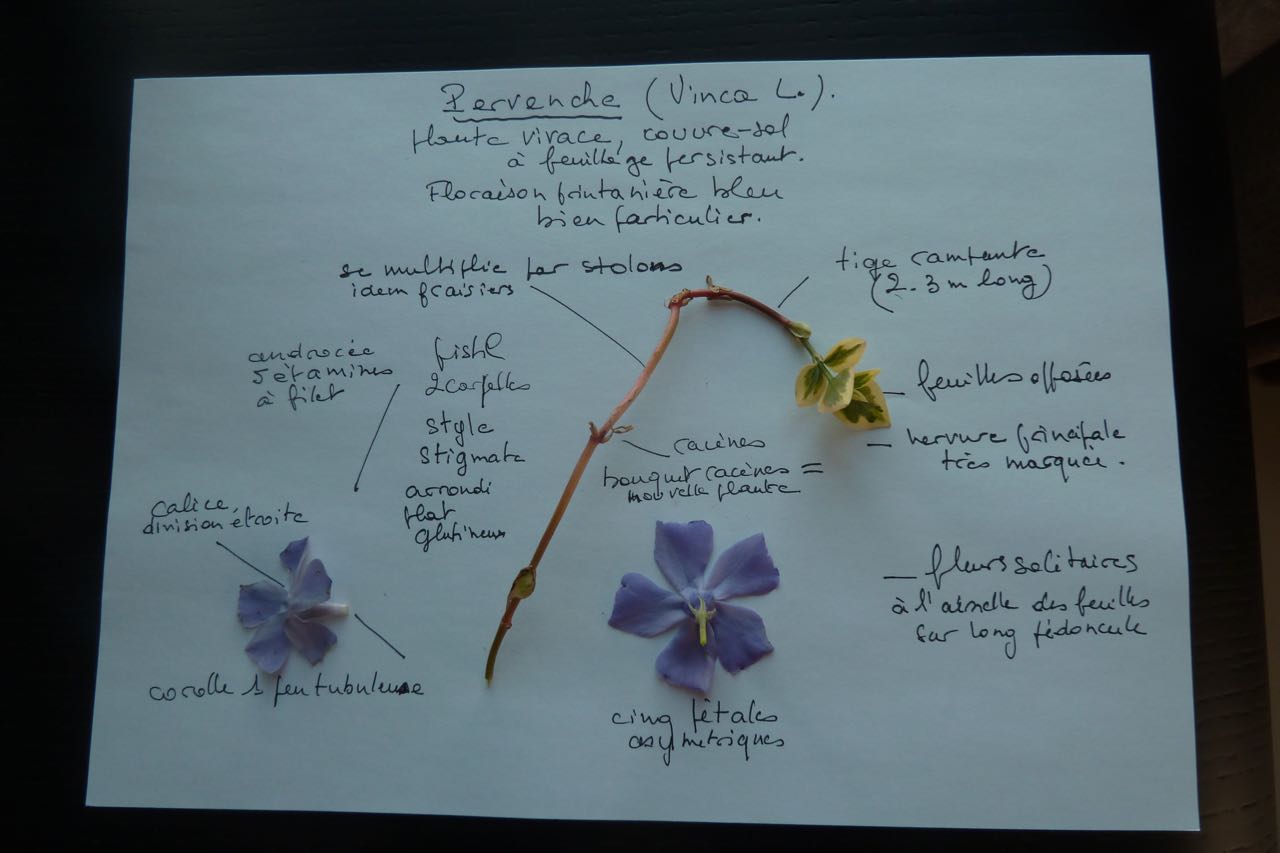 Pervenche (Vinca L.).
plante vivace, couvre-sol
à feuillage persistant.
Floraison printanière bleu
bien particulier.
se multiplie par stolons
idem fraisiers
tige rampante
(2.3m long)
androcée
5 étamines
à filet
pistil
2 carpelles
style
stigmate
arrondi
plat
glutineux
feuilles opposées
nervure principale
très marquée.
racines
bouquet racines =
nouvelle plante
calice,
division étroite
fleurs solitaires
à l'aisselle des feuilles
sur long pédoncule
corolle peu tubuleuse
cinq pétales
asymetriques